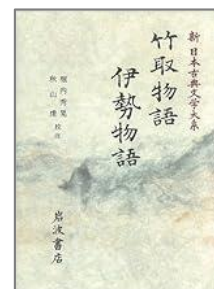 新 日本古典文学大系
竹取物語
伊勢物語
堀内秀晃
秋山虔 校注
岩波書店